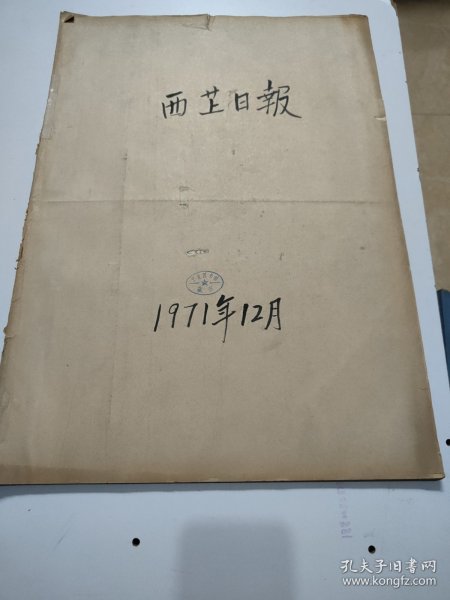 西芷日報
1971年12月
孔夫子旧书网
www.kongfz.com